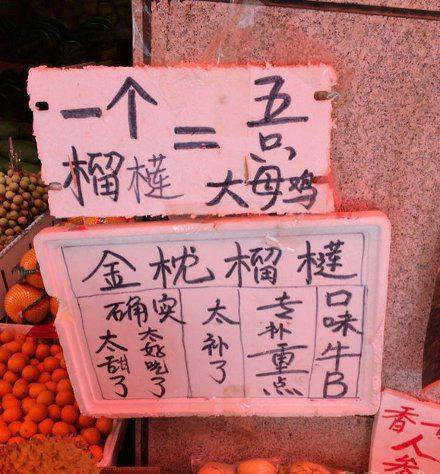 一个 = 五只
榴梿 大母鸡
金枕榴梿
确实
太甜了
太好吃了
太补了
专补重点
口味牛B
香
人参